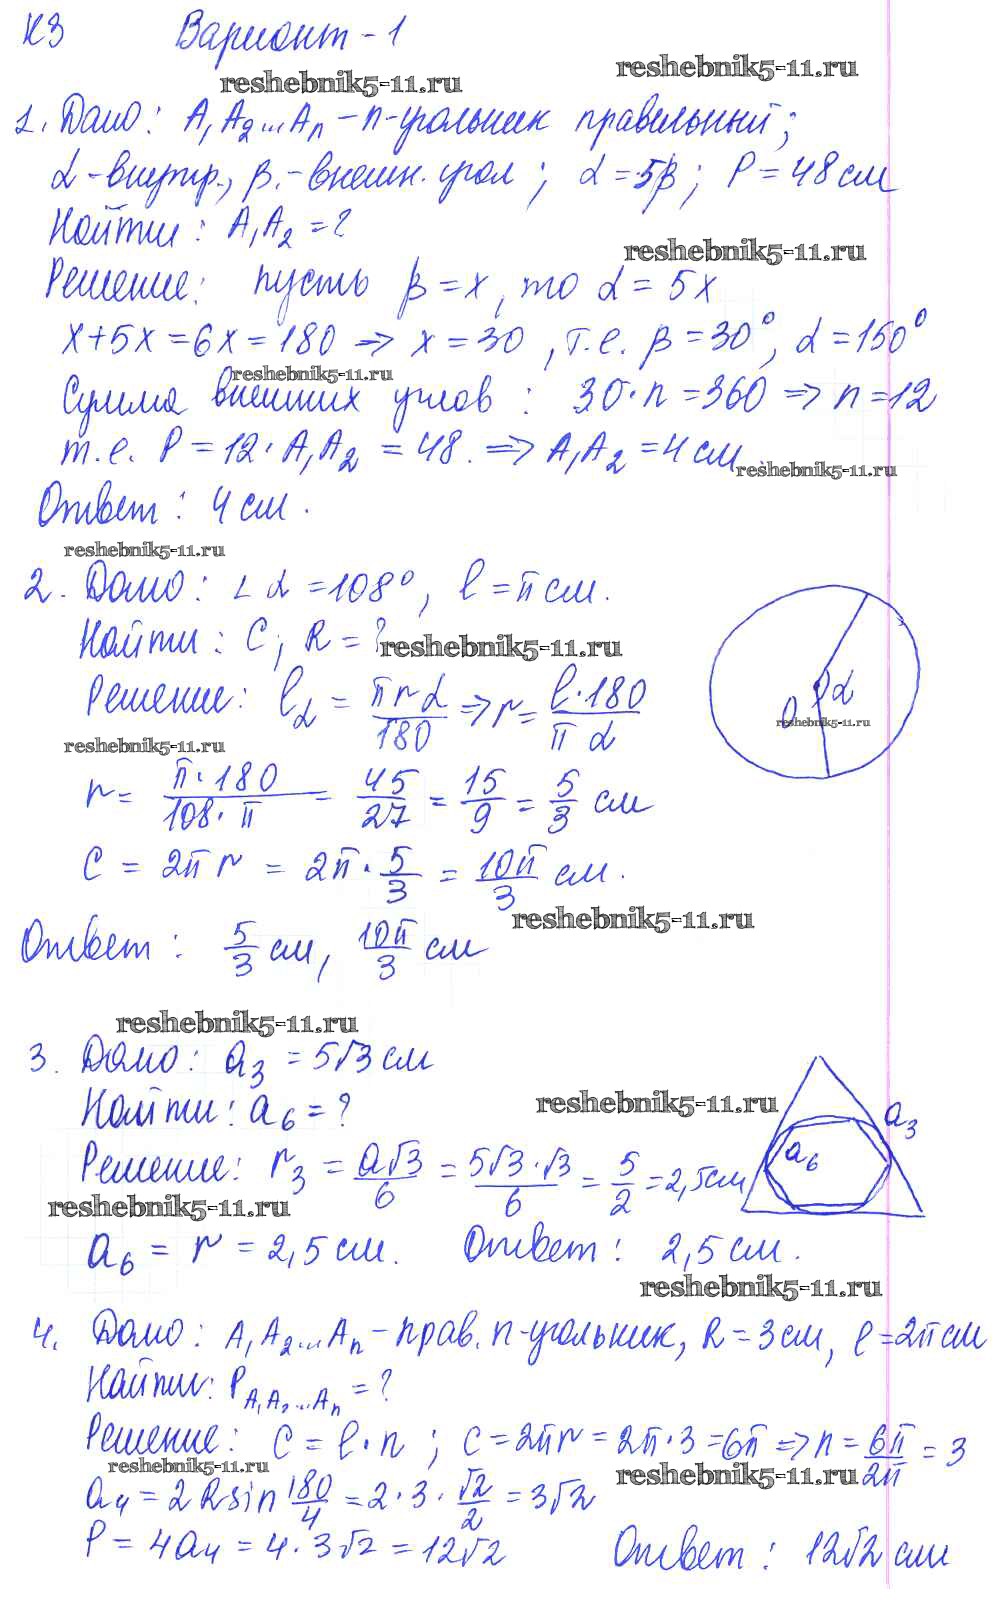 К3 Вариант - 1
reshebnik5-11.ru reshebnik5-11.ru
1. Дано: A₁A₂...Aₙ - n-угольник правильный;
α - внутр., β. - внешн. угол; α = 5β; P = 48 см
Найти: A₁A₂ = ?
reshebnik5-11.ru
Решение: пусть β = x, то α = 5x
x + 5x = 6x = 180 => x = 30, т.е. β = 30°, α = 150°
reshebnik5-11.ru
Сумма внешних углов: 30·n = 360 => n = 12
т.е. P = 12·A₁A₂ = 48. => A₁A₂ = 4 см.
reshebnik5-11.ru
Ответ: 4 см.
reshebnik5-11.ru
2. Дано: ∠α = 108°, l = π см.
Найти: C, R = ?
reshebnik5-11.ru
Решение: l_α = πrα/180 => r = l·180/πα
O α
reshebnik5-11.ru
reshebnik5-11.ru
r = π·180/108·π = 45/27 = 15/9 = 5/3 см
C = 2πr = 2π·5/3 = 10π/3 см.
reshebnik5-11.ru
Ответ: 5/3 см, 10π/3 см
reshebnik5-11.ru
3. Дано: a₃ = 5√3 см
Найти: a₆ = ?
reshebnik5-11.ru
a₃
a₆
Решение: r₃ = a√3/6 = 5√3·√3/6 = 5/2 = 2,5 см
reshebnik5-11.ru
a₆ = r = 2,5 см. Ответ: 2,5 см.
reshebnik5-11.ru
4. Дано: A₁A₂...Aₙ - прав. n-угольник, R = 3 см, l = 2π см
Найти: P_A₁A₂...Aₙ = ?
Решение: C = l·n; C = 2πr = 2π·3 = 6π => n = 6π/2π = 3
reshebnik5-11.ru reshebnik5-11.ru
a₄ = 2R sin 180/4 = 2·3·√2/2 = 3√2
P = 4a₄ = 4·3√2 = 12√2 Ответ: 12√2 см